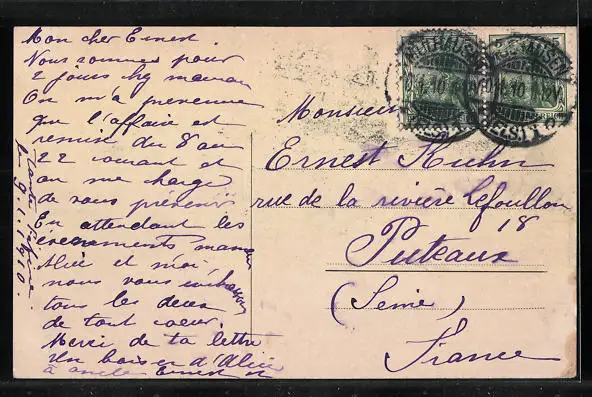 Mon cher Ernest
Nous sommes pour
2 jours chz maman
On m'a prevenue
que l'affaire est
remise du 8 au
22 courant et
on me charge
de vous prévenir
En attendant les
évènements maman
Alice et moi,
nous vous embrassons
tous les deux
de tout coeur.
Merci de ta lettre
Un baiser d'Alice
à oncle Ernest et
le 9.1.1910.
MÜLHAUSEN
1.10
(ELS)
Monsieur
Ernest Kuhn
rue de la rivière Lefoullon
18
Puteaux
(Seine)
France